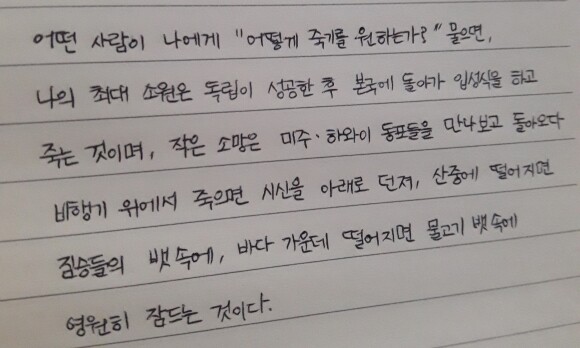 어떤 사람이 나에게 "어떻게 죽기를 원하는가?" 물으면,
나의 최대 소원은 독립이 성공한 후 본국에 돌아가 입성식을 하고
죽는 것이며, 작은 소망은 미주·하와이 동포들을 만나보고 돌아오다
비행기 위에서 죽으면 시신을 아래로 던져, 산중에 떨어지면
짐승들의 뱃속에, 바다 가운데 떨어지면 물고기 뱃속에
영원히 잠드는 것이다.